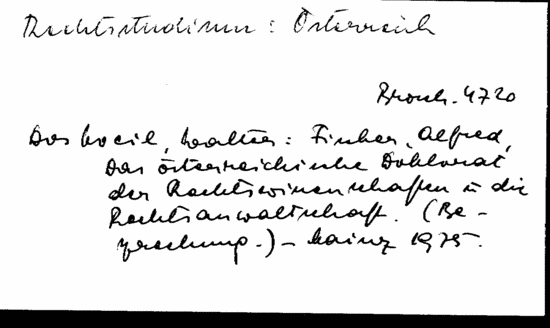 Rechtsstudium: Österreich
Brosch. 4720
Doskocil, Walter: Fischer, Alfred,
Das österreichische Doktorat
der Rechtswissenschaften u die
Rechtsanwaltschaft. (Be-
sprechung.) – Mainz 1975.